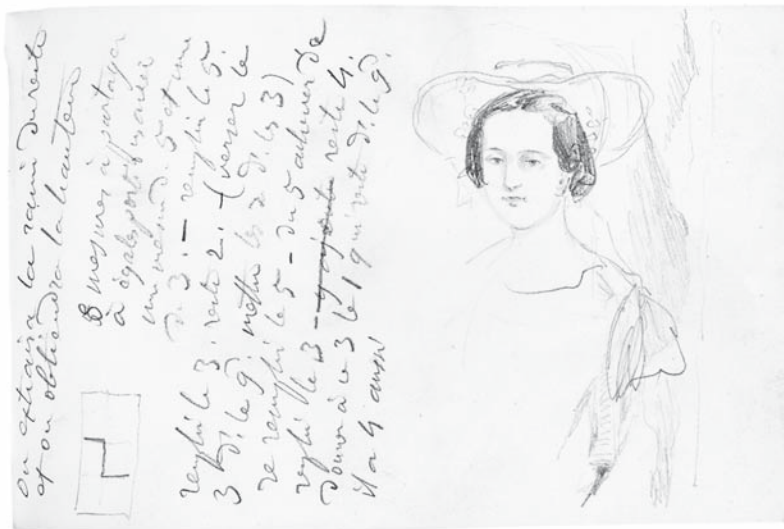 on extraira la racine du reste
et on obtiendra la hauteur
8 mesures à partager
à égales portions avec
une mesure d. 5 et une
d. 3. – remplir le 5
remplir le 3. reste 2. – (verser le
3 d. le 9. mettre les 2 d. les 3)
re remplir le 5 – du 5 achever de
remplir le 3 – reste 4.
donner à ce 3 le 1 qui reste d. le 9.
il a 4 aussi